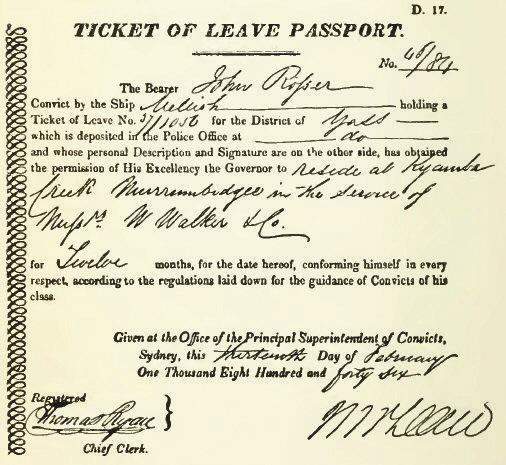 D. 17.
TICKET OF LEAVE PASSPORT.
No. 46/84
The Bearer John Rosser
Convict by the Ship Mellish holding a
Ticket of Leave No. 37/1056 for the District of Yass —
which is deposited in the Police Office at do
and whose personal Description and Signature are on the other side, has obtained
the permission of His Excellency the Governor to reside at Kyamba
Creek Murrumbidgee in the service of
Messrs. W Walker & Co.
for Twelve months, for the date hereof, conforming himself in every
respect, according to the regulations laid down for the guidance of Convicts of his
class.
Given at the Office of the Principal Superintendent of Convicts,
Sydney, this thirteenth Day of February
One Thousand Eight Hundred and forty six
Registered
Thomas Ryan
Chief Clerk.